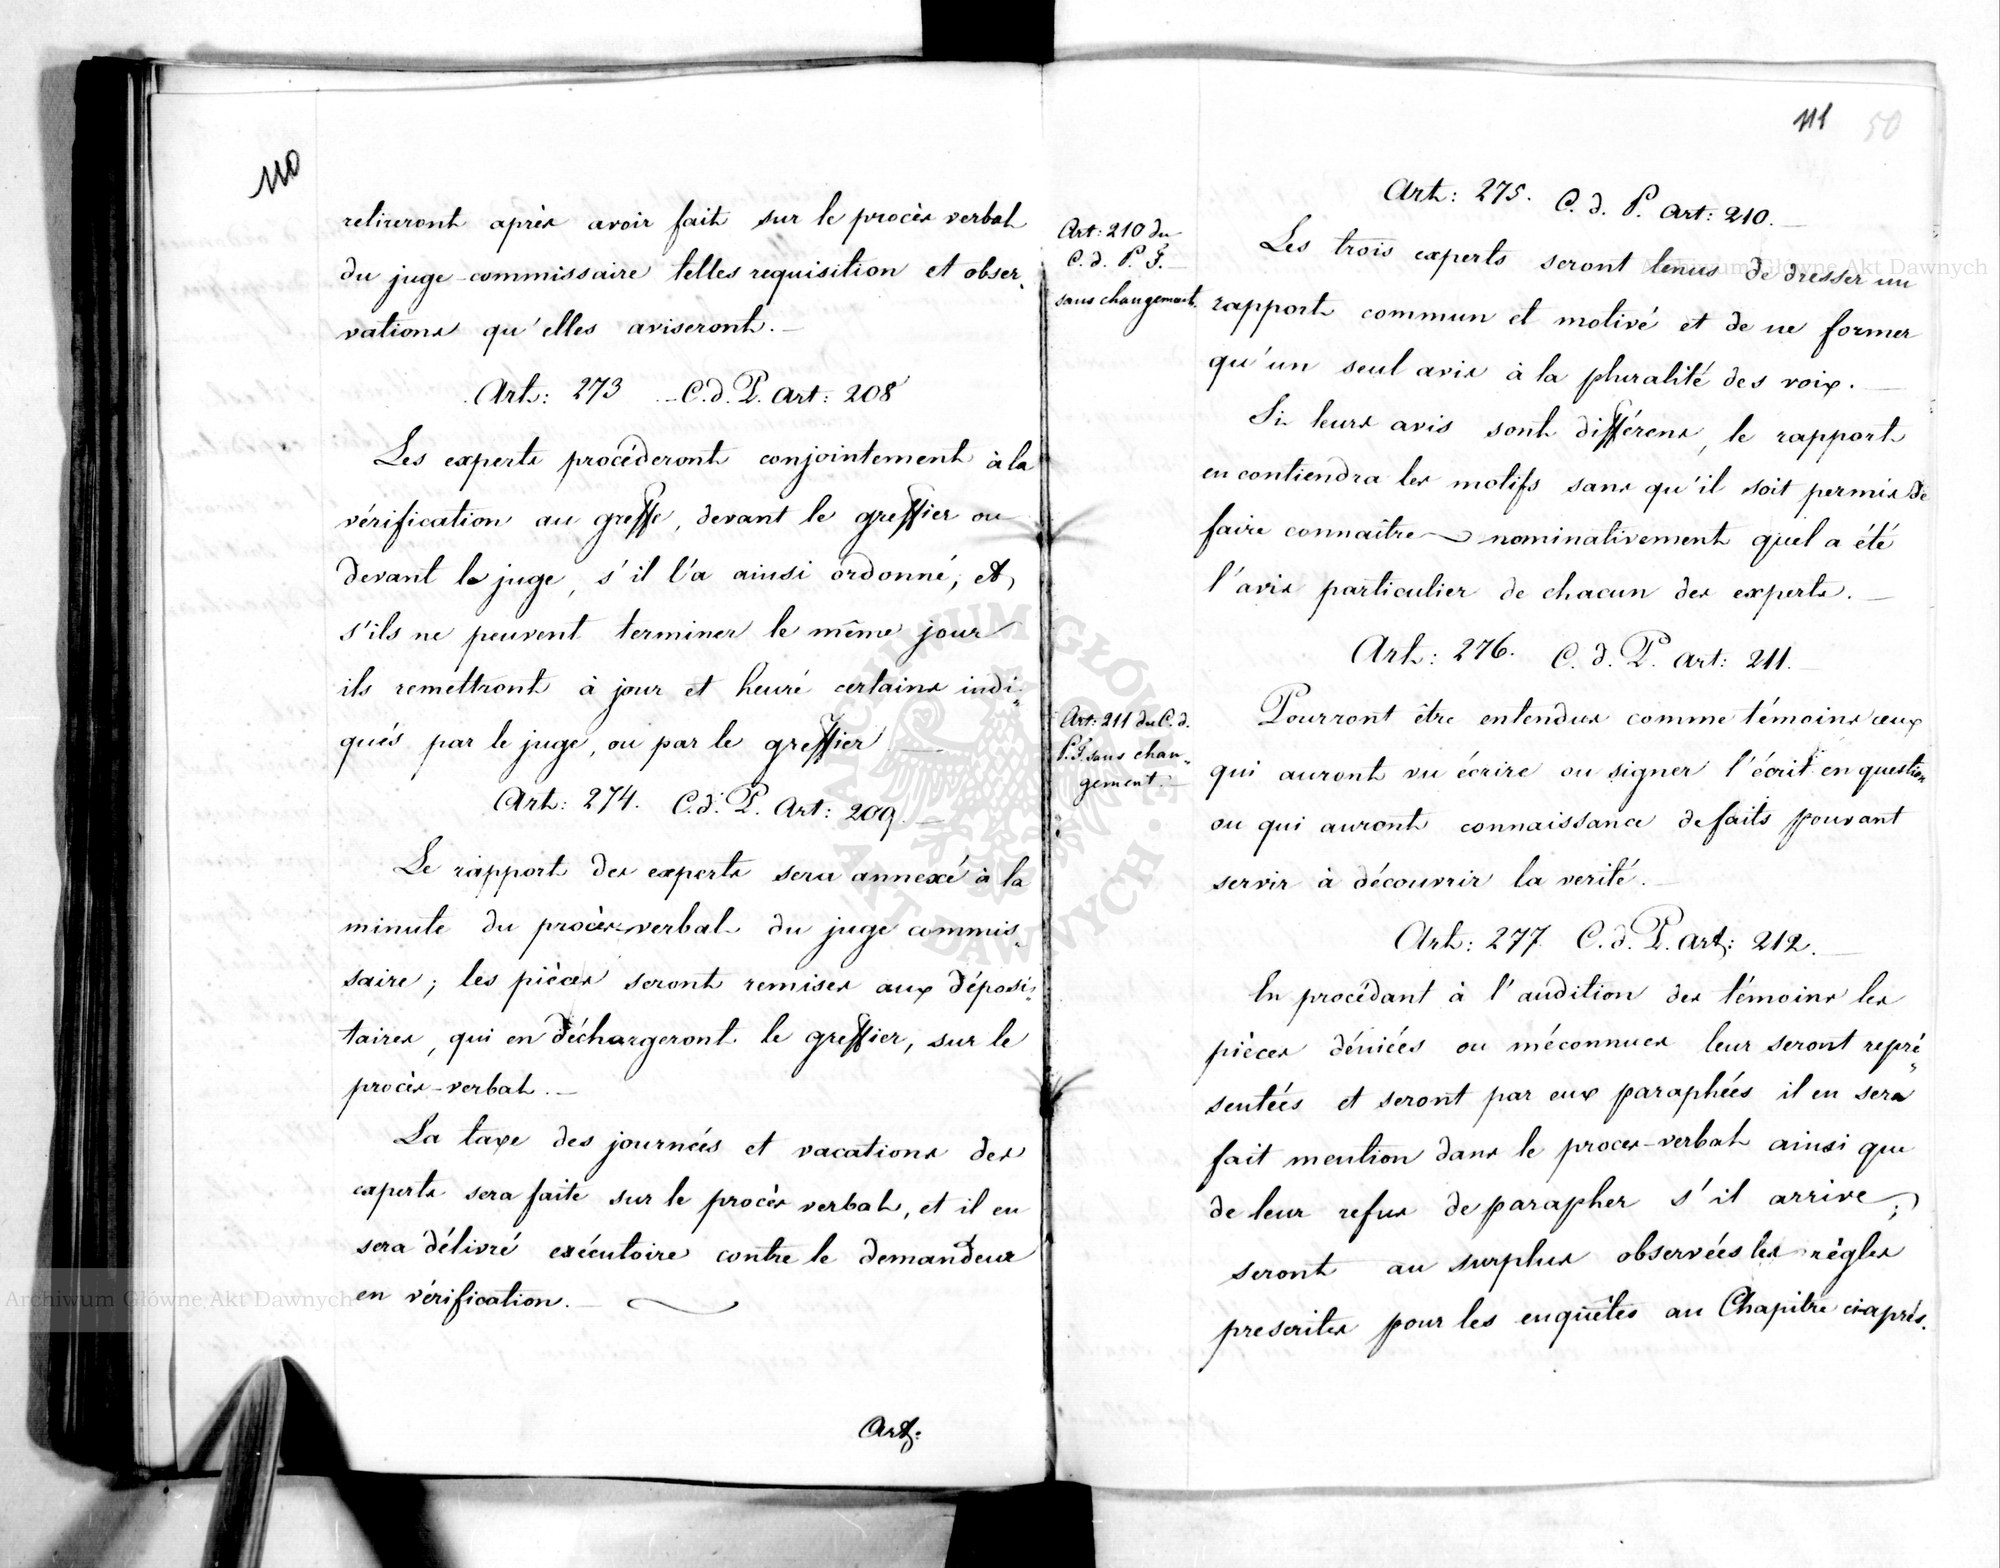 110
retireront après avoir fait sur le procès verbal
du juge-commissaire telles requisition et obser-
vations qu'elles aviseront. —
Art: 273 C. d. P. Art: 208
Les experts procéderont conjointement à la
vérification au greffe, devant le greffier ou
devant le juge, s'il l'a ainsi ordonné; et,
s'ils ne peuvent terminer le même jour
ils remettront à jour et heure certains indi-
qués par le juge, ou par le greffier —
Art: 274. C. d. P. Art: 209. —
Le rapport des experts sera annexé à la
minute du procès-verbal du juge commis-
saire; les pièces seront remises aux déposi-
taires, qui en déchargeront le greffier, sur le
procès-verbal. —
La taxe des journées et vacations des
experts sera faite sur le procès verbal, et il en
sera délivré exécutoire contre le demandeur
en vérification. —
Art:
111 50
Art: 275. C. d. P. Art: 210. —
Art: 210 du
C. d. P. F. —
sans changement.
Les trois experts seront tenus de dresser un
rapport commun et motivé et de ne former
qu'un seul avis à la pluralité des voix. —
Si leurs avis sont différens, le rapport
en contiendra les motifs sans qu'il soit permis de
faire connaître nominativement quel a été
l'avis particulier de chacun des experts. —
Art: 276. C. d. P. Art: 211. —
Art: 211 du C. d.
P. F. sans chan-
gement. —
Pourront être entendus comme témoins ceux
qui auront vu écrire ou signer l'écrit en question
ou qui auront connaissance de faits pouvant
servir à découvrir la verité. —
Art: 277 C. d. P. Art: 212. —
En procédant à l'audition des témoins les
pièces déniées ou méconnues leur seront repré-
sentées et seront par eux paraphées il en sera
fait mention dans le proces-verbal ainsi que
de leur refus de parapher s'il arrive;
seront au surplus observées les règles
prescrites pour les enquêtes au Chapitre ci après.
Archiwum Główne Akt Dawnych
Archiwum Główne Akt Dawnych
ARCHIWUM GŁÓWNE · AKT DAWNYCH ·